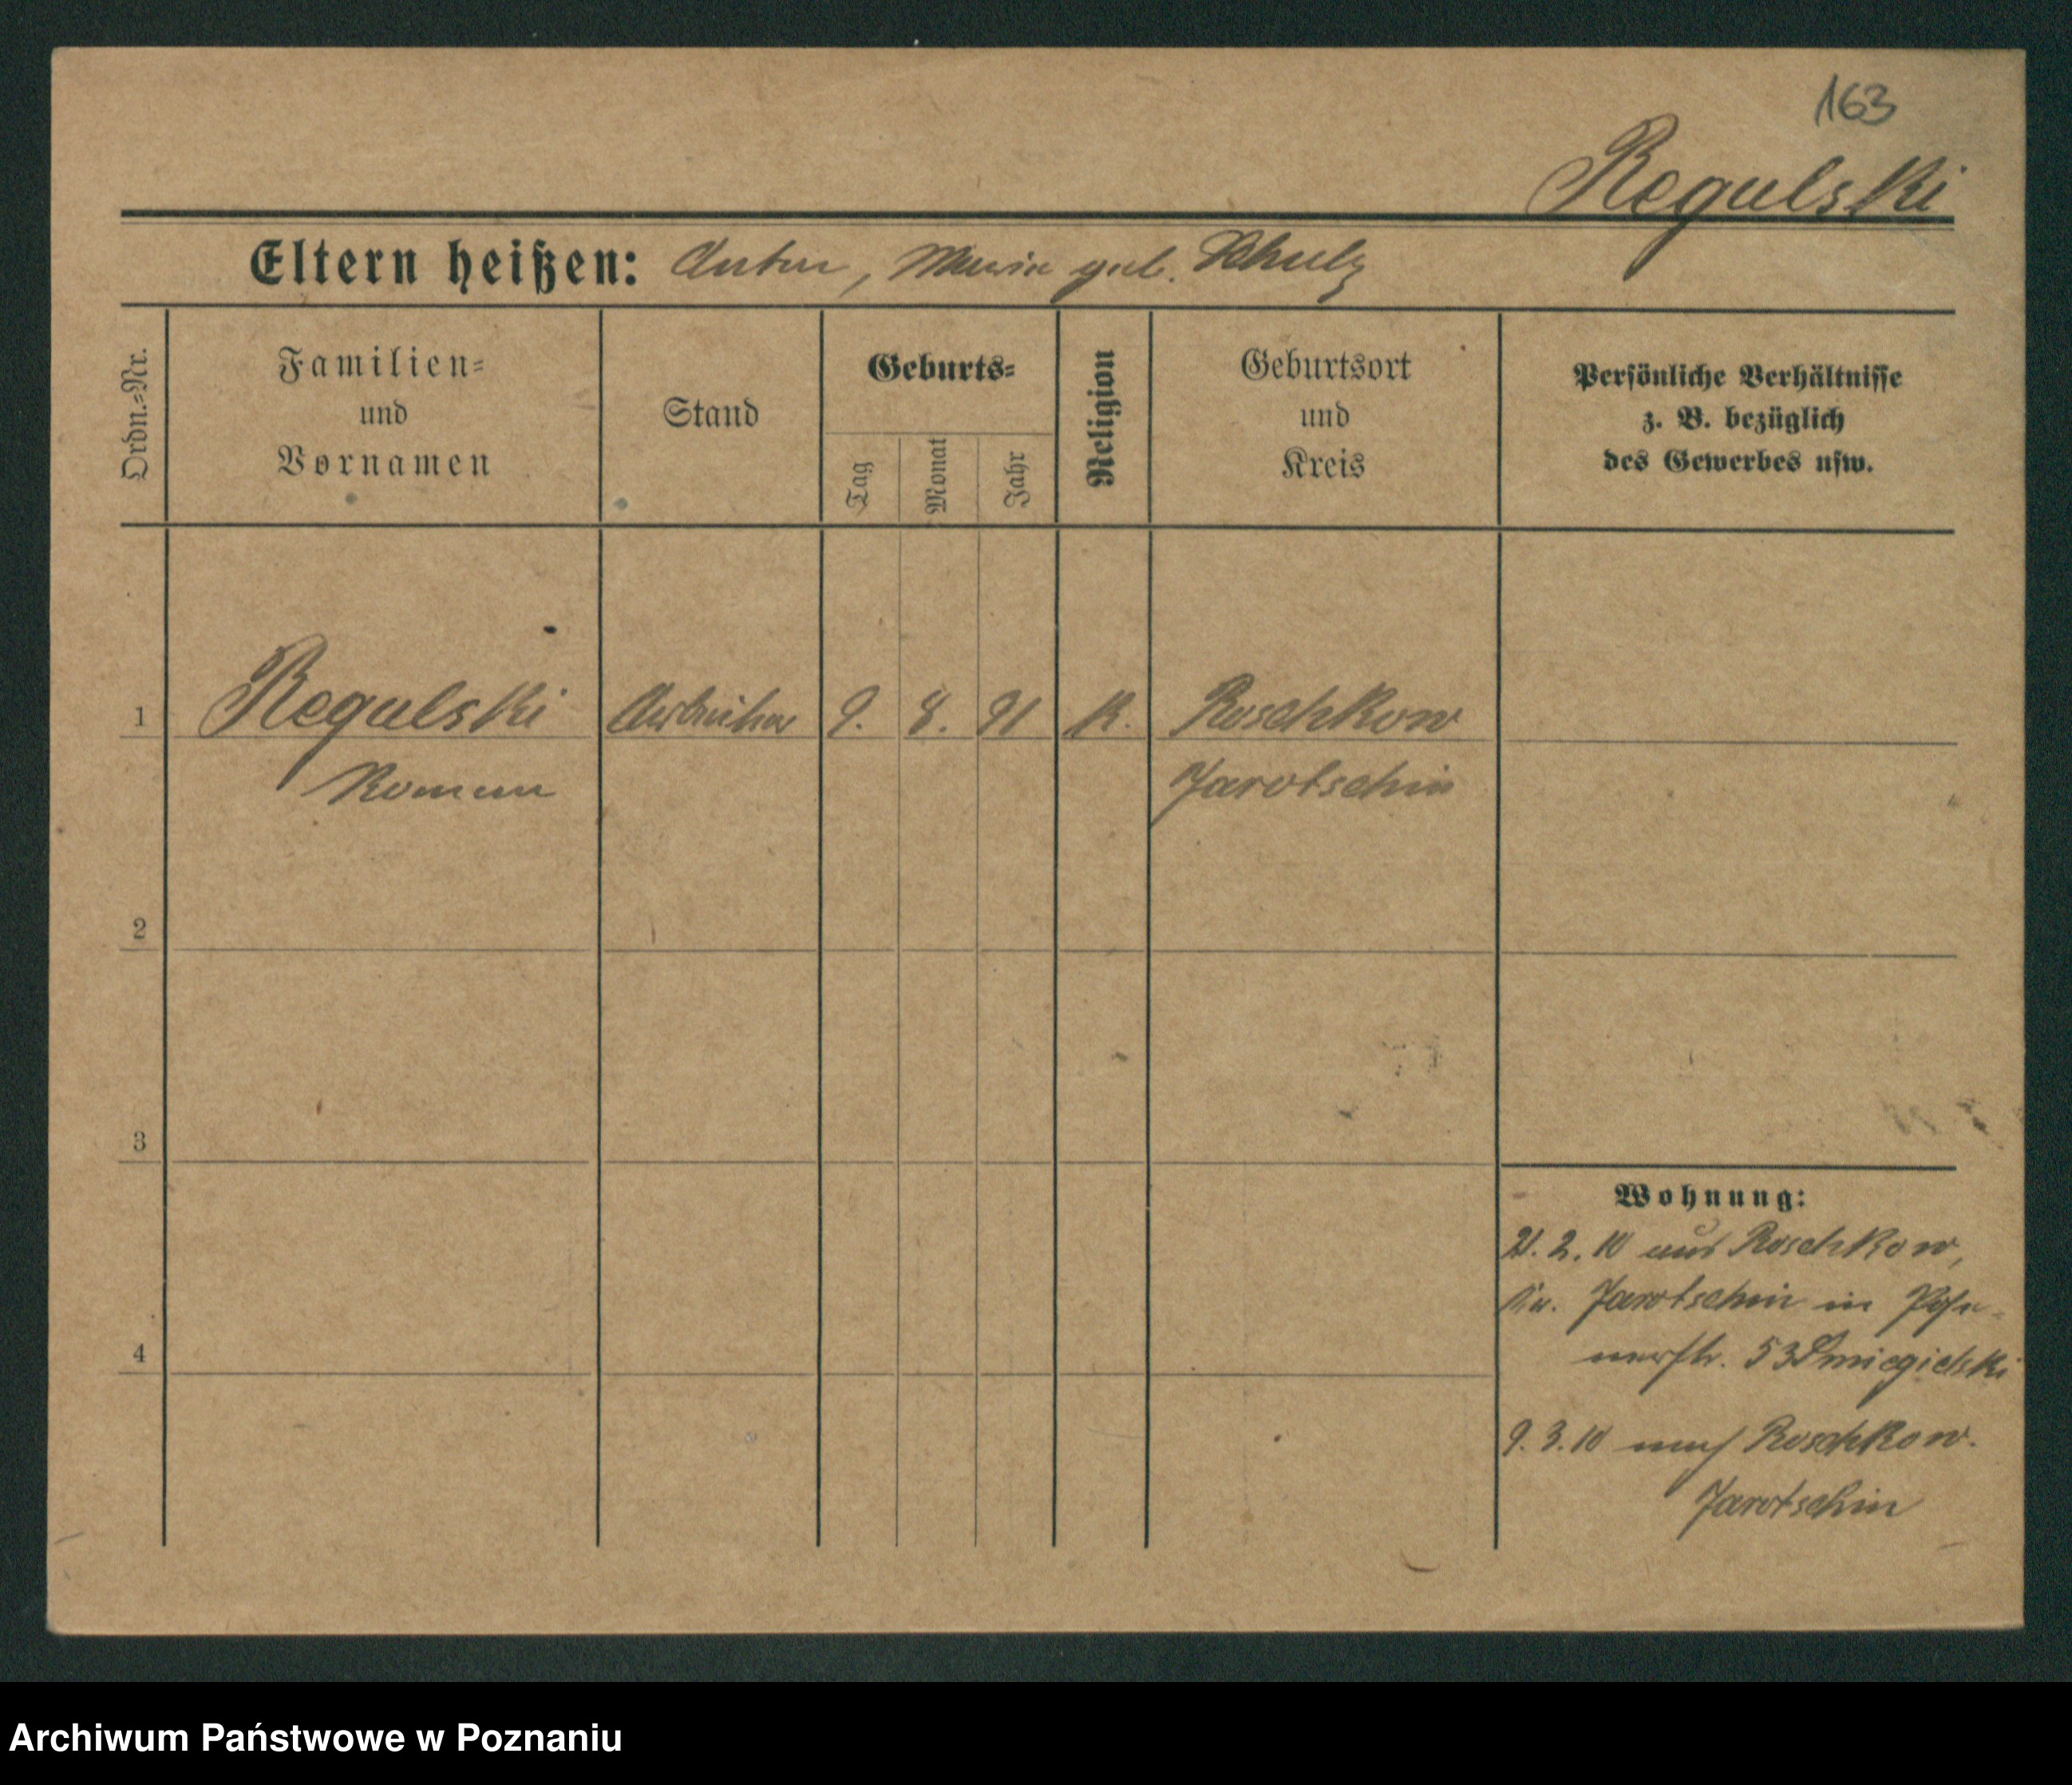 163
Regulski
Eltern heißen: Anton, Maria geb. Schulz
Ordn.-Nr.
Familien-
und
Vornamen
Stand
Geburts-
Tag
Monat
Jahr
Religion
Geburtsort
und
Kreis
Persönliche Verhältnisse
z. B. bezüglich
des Gewerbes usw.
1 Regulski Arbeiter 9. 8. 91 K. Roschkow
Roman Jarotschin
2
3
Wohnung:
21. 2. 10 aus Roschkow,
Kr. Jarotschin in Pose-
4
nerstr. 53 Smiegielski
9. 3. 10 nach Roschkow.
Jarotschin
Archiwum Państwowe w Poznaniu